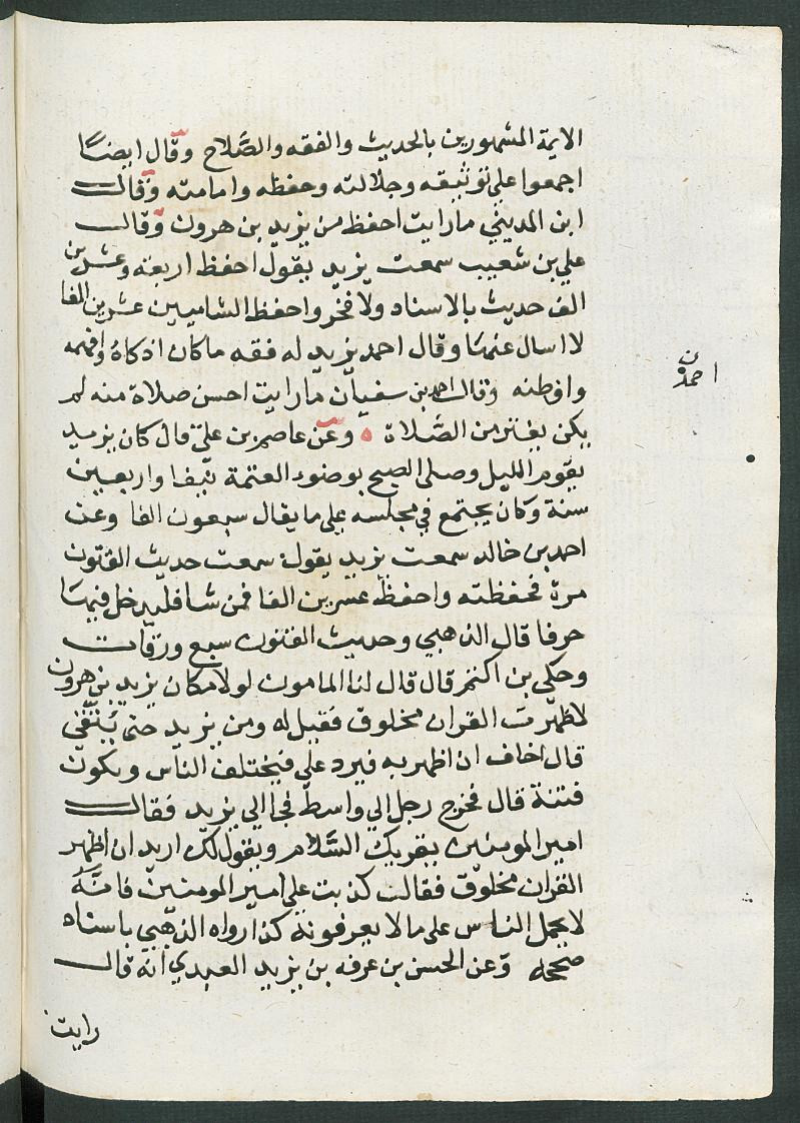 الايمة المشهورين بالحديث والفقه والصَّلاح وقال ايضًا
اجمعوا علي توثيقه وجلالته وحفظه وامامته وقال
ابن المديني مارايت احفظ من يزيد بن هرون وقال
علي بن شعيب سمعت يزيد يقول احفظ اربعة وعشرين
الف حديث بالاسناد ولا فخر واحفظ الشاميين عشرين الفا
لا اسال عنها وقال احمد يزيد له فقه ماكان اذكاه وافهمه
وافطنه وقال احمد بن سفيان مارايت احسن صلاة منه لم
يكن يفتر من الصَّلاة ه وعن عاصم بن علي قال كان يزيد
يقوم الليل وصلى الصبح بوضوء العتمة نيفا واربعين
سنة وكان يجتمع في مجلسه على ما يقال سبعون الفا وعن
احمد بن خالد سمعت يزيد يقول سمعت حديث الفتون
مرة فحفظته واحفظ عشرين الفا فمن شا فليدخل فيها
حرفا قال الذهبي وحديث الفتون سبع ورقات
وحكي بن اكثم قال قال لنا المامون لولا مكان يزيد بن هرون
لاظهرت القران مخلوق فقيل له ومن يزيد حتى يُتّقى
قال اخاف ان اظهر به فيرد علي فيختلف الناس ويكون
فتنة قال فخرج رجل الي واسط فجا الي يزيد فقال
امير المومنين يقريك السَّلام ويقول لك اريد ان اظهر
القران مخلوق فقال كذبت علي امير المومنين فانَّهُ
لا يحمل الناس على ما لا يعرفونه كذا رواه الذهبي باسناد
صححه وعن الحسن بن عرفه بن يزيد العبدي انه قال
رايت